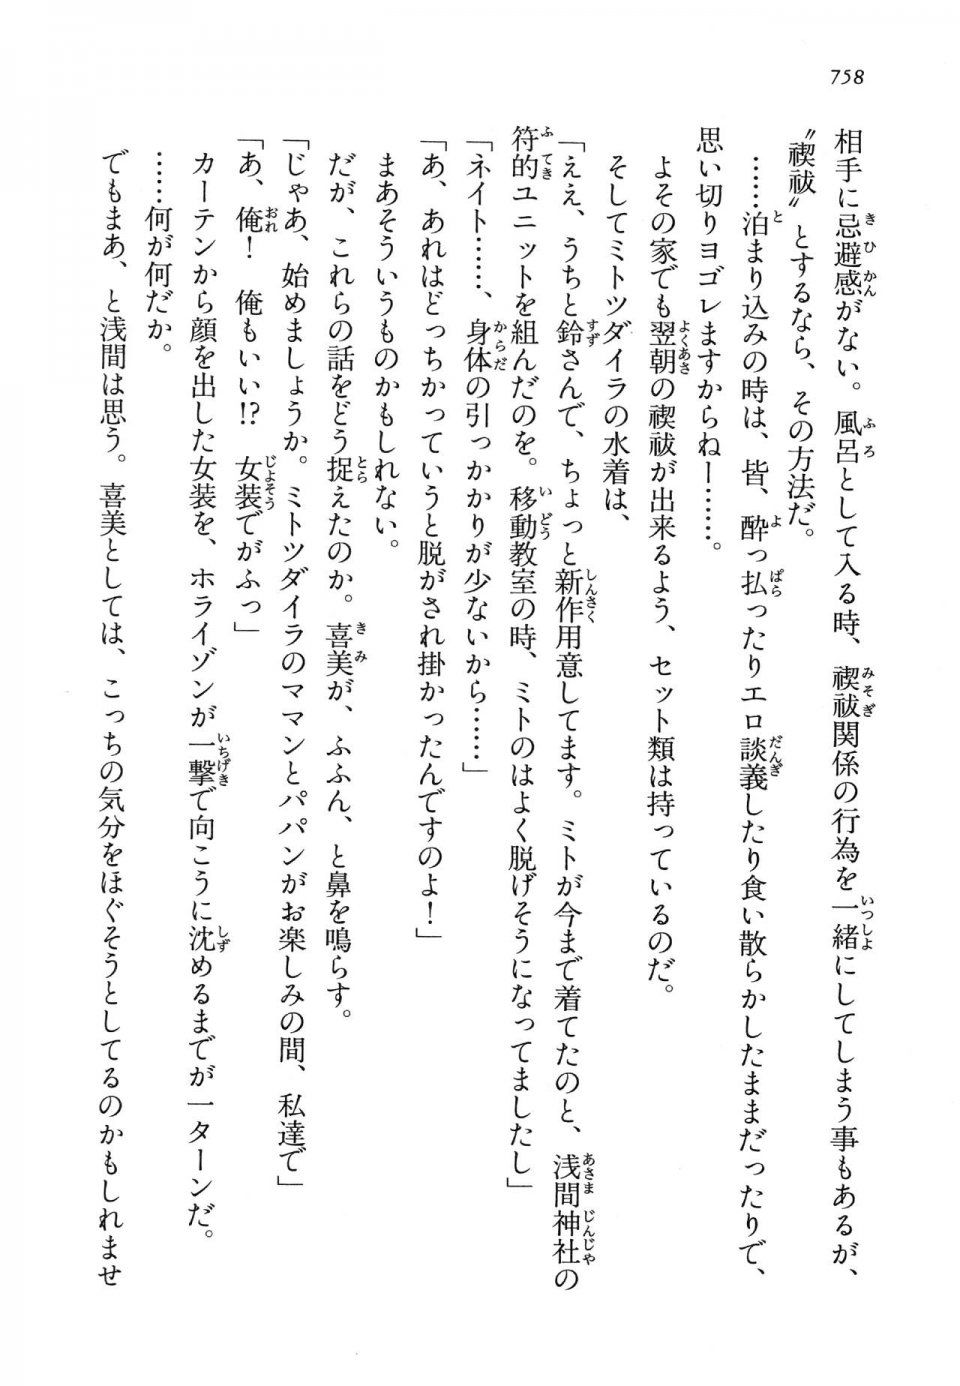 758
相手に忌避感がない。風呂として入る時、禊祓関係の行為を一緒にしてしまう事もあるが、
〝禊祓〟とするなら、その方法だ。
……泊まり込みの時は、皆、酔っ払ったりエロ談義したり食い散らかしたままだったりで、
思い切りヨゴレますからねー……。
よその家でも翌朝の禊祓が出来るよう、セット類は持っているのだ。
そしてミトツダイラの水着は、
「ええ、うちと鈴さんで、ちょっと新作用意してます。ミトが今まで着てたのと、浅間神社の
符的ユニットを組んだのを。移動教室の時、ミトのはよく脱げそうになってましたし」
「ネイト……、身体の引っかかりが少ないから……」
「あ、あれはどっちかっていうと脱がされ掛かったんですのよ！」
まあそういうものかもしれない。
だが、これらの話をどう捉えたのか。喜美が、ふふん、と鼻を鳴らす。
「じゃあ、始めましょうか。ミトツダイラのママンとパパンがお楽しみの間、私達で」
「あ、俺！　俺もいい!?　女装でがふっ」
カーテンから顔を出した女装を、ホライゾンが一撃で向こうに沈めるまでが一ターンだ。
……何が何だか。
でもまあ、と浅間は思う。喜美としては、こっちの気分をほぐそうとしてるのかもしれませ